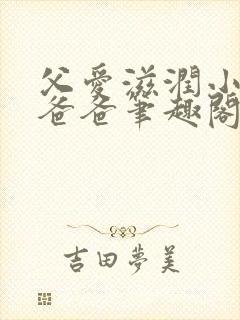 父愛滋潤小
爸爸筆趣閣
吉田夢美